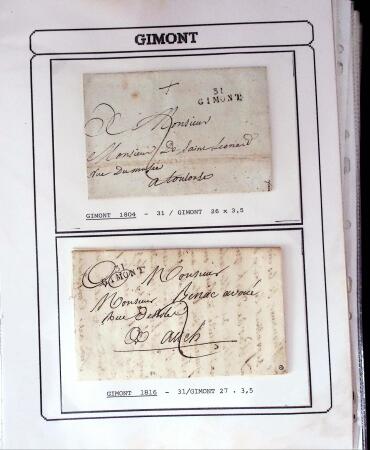 GIMONT
31
GIMONT
A Monsieur
Monsieur De Saint Leonard
rue du
a toulouse
GIMONT 1804 - 31 / GIMONT 26 x 3,5
31
GIMONT
A Monsieur
Monsieur Benac avoué
Rue
A auch
GIMONT 1816 - 31/GIMONT 27 . 3,5